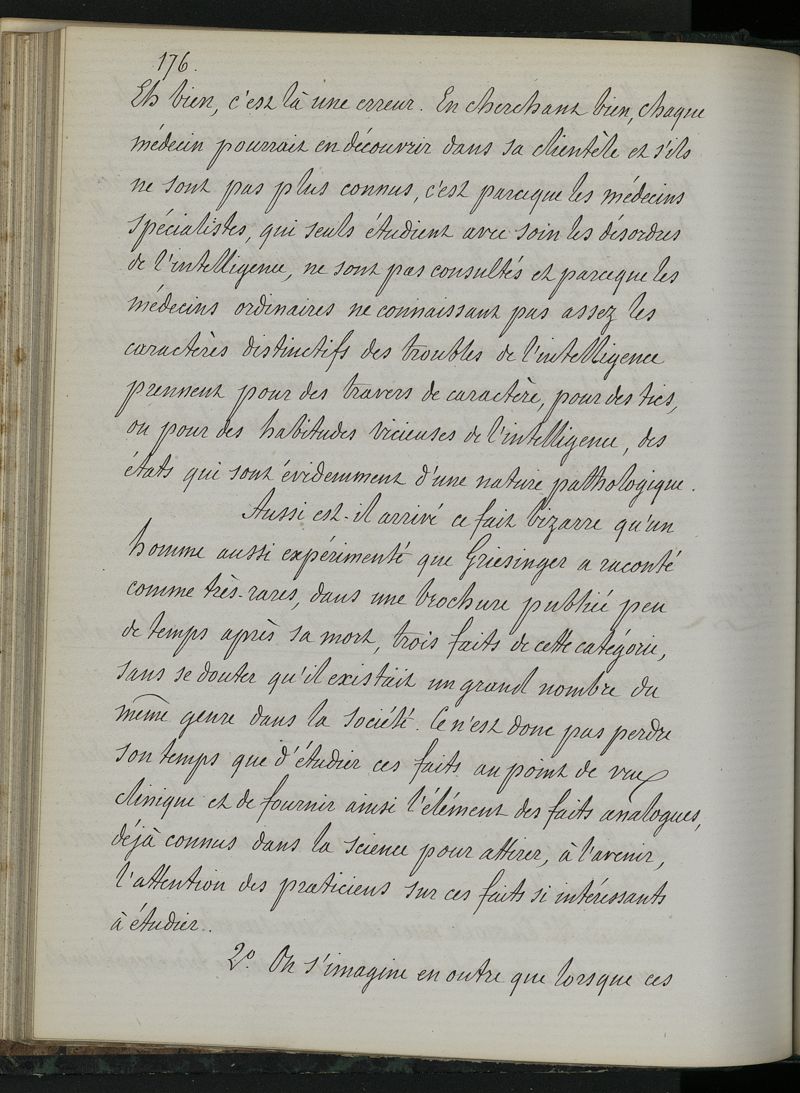 176.
Eh bien, c'est là une erreur. En cherchant bien, chaque
médecin pourrait en découvrir dans sa clientèle et s'ils
ne sont pas plus connus, c'est parceque les médecins
spécialistes, qui seuls étudient avec soin les désordres
de l'intelligence, ne sont pas consultés et parceque les
médecins ordinaires ne connaissant pas assez les
caractères distinctifs des troubles de l'intelligence
prennent pour des travers de caractère, pour des tics,
ou pour des habitudes vicieuses de l'intelligence, des
états qui sont évidemment d'une nature pathologique.
Aussi est-il arrivé ce fait bizarre qu'un
homme aussi expérimenté que Griesinger a raconté
comme très-rares, dans une brochure publiée peu
de temps après sa mort, trois faits de cette catégorie,
sans se douter qu'il existait un grand nombre du
même genre dans la société. Ce n'est donc pas perdre
son temps que d'étudier ces faits au point de vue
clinique et de fournir ainsi l'élément des faits analogues,
déjà connus dans la science pour attirer, à l'avenir,
l'attention des praticiens sur ces faits si intéressants
à étudier.
2º. On s'imagine en outre que lorsque ces